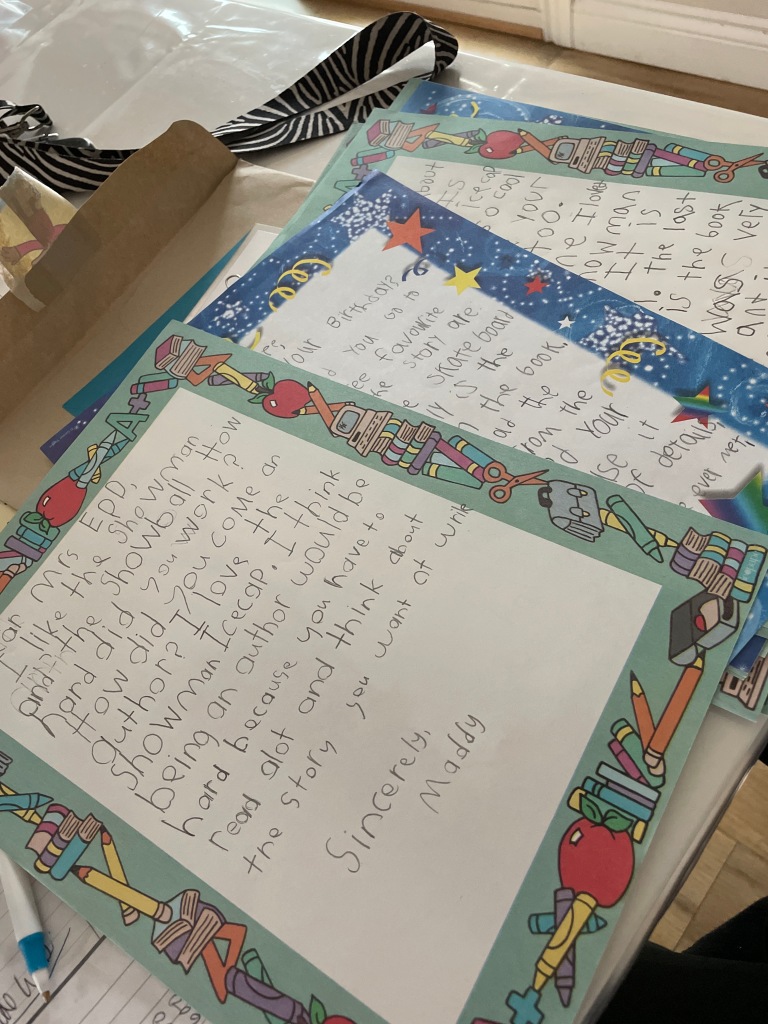 ear Mrs EPP,
I like the showman
and the showball. How
hard did you work?
How did you come an
author? I love the
showman Icecap. I think
being an author would be
hard because you have to
read alot and think about
the story you want ot write
Sincerely,
Maddy
your Birthday?
you go to
favourite
story are
skateboard
is the
the book,
the
from the
your
it
of details,
ever
icecap
cool
your
too.
I love
It is
the last
is the book
very
it